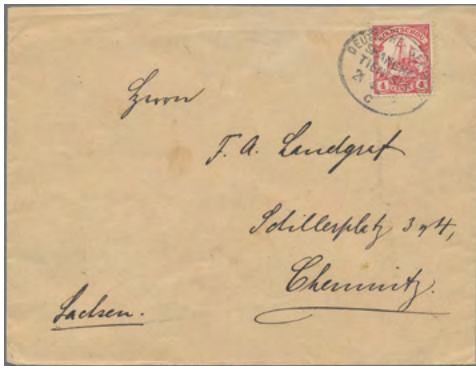 KIAUTSCHOU
4 4
Herrn
F. A. Landgraf
Schillerplatz 3 u 4,
Chemnitz.
Sachsen.